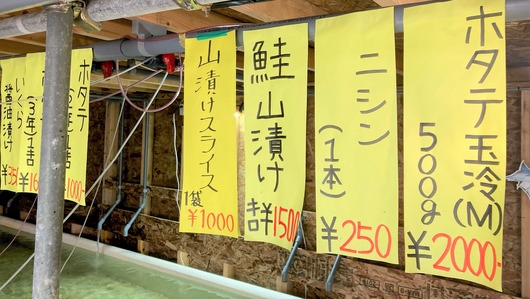 ホタテ玉冷(M)
500g
¥2000-
ニシン
(1本)
¥250
鮭山漬け
1500
山漬けスライス
1袋
¥1000
ホタテ
1000-
(3年)
¥16
いくら
醤油漬け
¥35